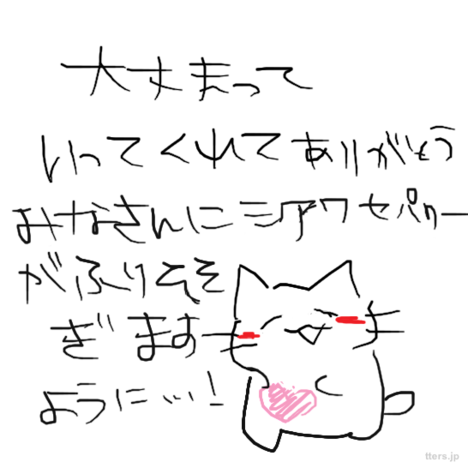 大丈まって
いってくれてありがとう
みなさんにシアワセパワー
がふりそそ
ぎます
ように…！
tters.jp